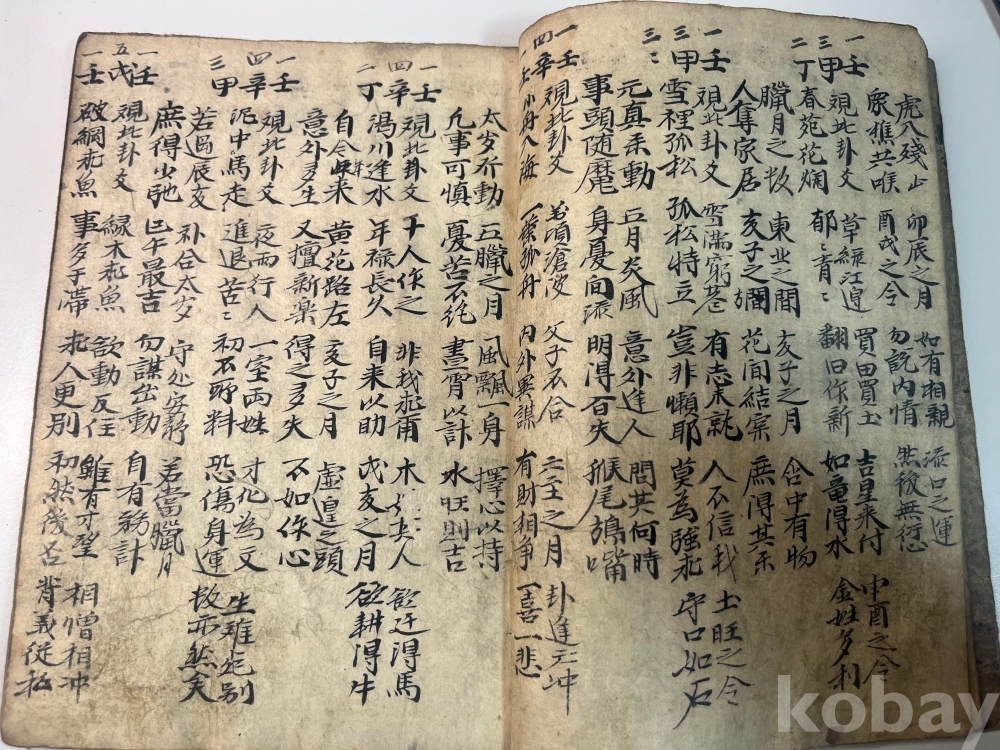 虎入殘山 卯辰之月 如有相親 添口之運
衆樵共喉 酉戌之令 勿說内情 然後無愆
一壬
三甲
二丁
覌此卦爻 草綠江邊 買田買土 吉星来付 申酉之令
春苑花爛 郁〻青〻 翻旧作新 如竜得水 金姓多利
臘月之数 東北之間 亥子之月 舍中有物
人奪家居 亥子之 花間結 庶得其
一壬
三甲
三〻
覌此卦爻 雪滿窮巷 有志未就 人不信我 土旺之令
雪裡孤松 孤松特立 豈非懶耶 莫為強求 守口如石
元真 動 五月炎風 意外進人 問其何時
事頭随魔 身憂間添 明得百失 猴尾 嘴
一壬
四辛
一壬
覌此卦爻 萬頃滄波 父子不合 二三之月 卦逢元冲
小舟入海 一葉孤舟 内外異謀 有財相争 一喜一悲
太岁所動 五臘之月 風飄一身 擇心以持
凡事可慎 憂苦不絶 晝宵以計 水旺則吉
一壬
四辛
二丁
覌此卦爻 千人作之 非我求 木 人 得馬
渴川逢水 年禄長久 自来以助 戌亥之月 欲耕得牛
自今 来 黄花路左 亥子之月 虚皇之頭
意外多生 又擅新楽 得之多失 不如你心
一壬
四辛
三甲
覌此卦爻 夜雨行人 一室両姓 才化為文 生離死别
泥中馬走 進退苦〻 初不所料 恐傷身運 数亦然矣
若過辰亥 卦合太岁 守处安静 若當臘月
庶得小馳 巳午最吉 勿謀出動 自有務計
一壬
五戊
一壬
覌此卦爻 緣木求魚 欲動反住 雖有才望 相憎相冲
破網求魚 事多于帶 求人更别 初然後否 背義従私
kobay